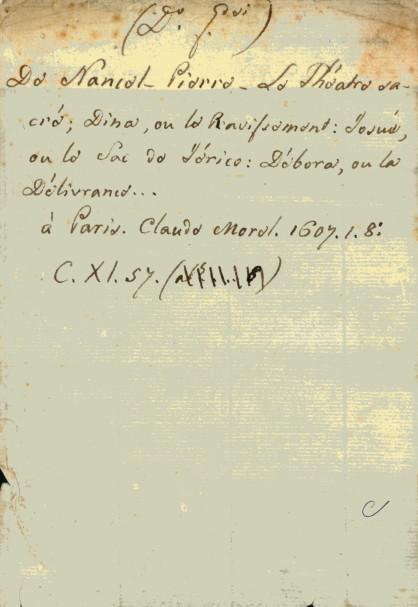 De Nancel-Pierre-Le Théatre sa-
cré; Dina, ou le Ravissement: Josué,
ou le Sac de Jérico: Débora, ou la
Délivrance...
à Paris. Claude Morel. 1607. 1. 8:
C. XI. 57.